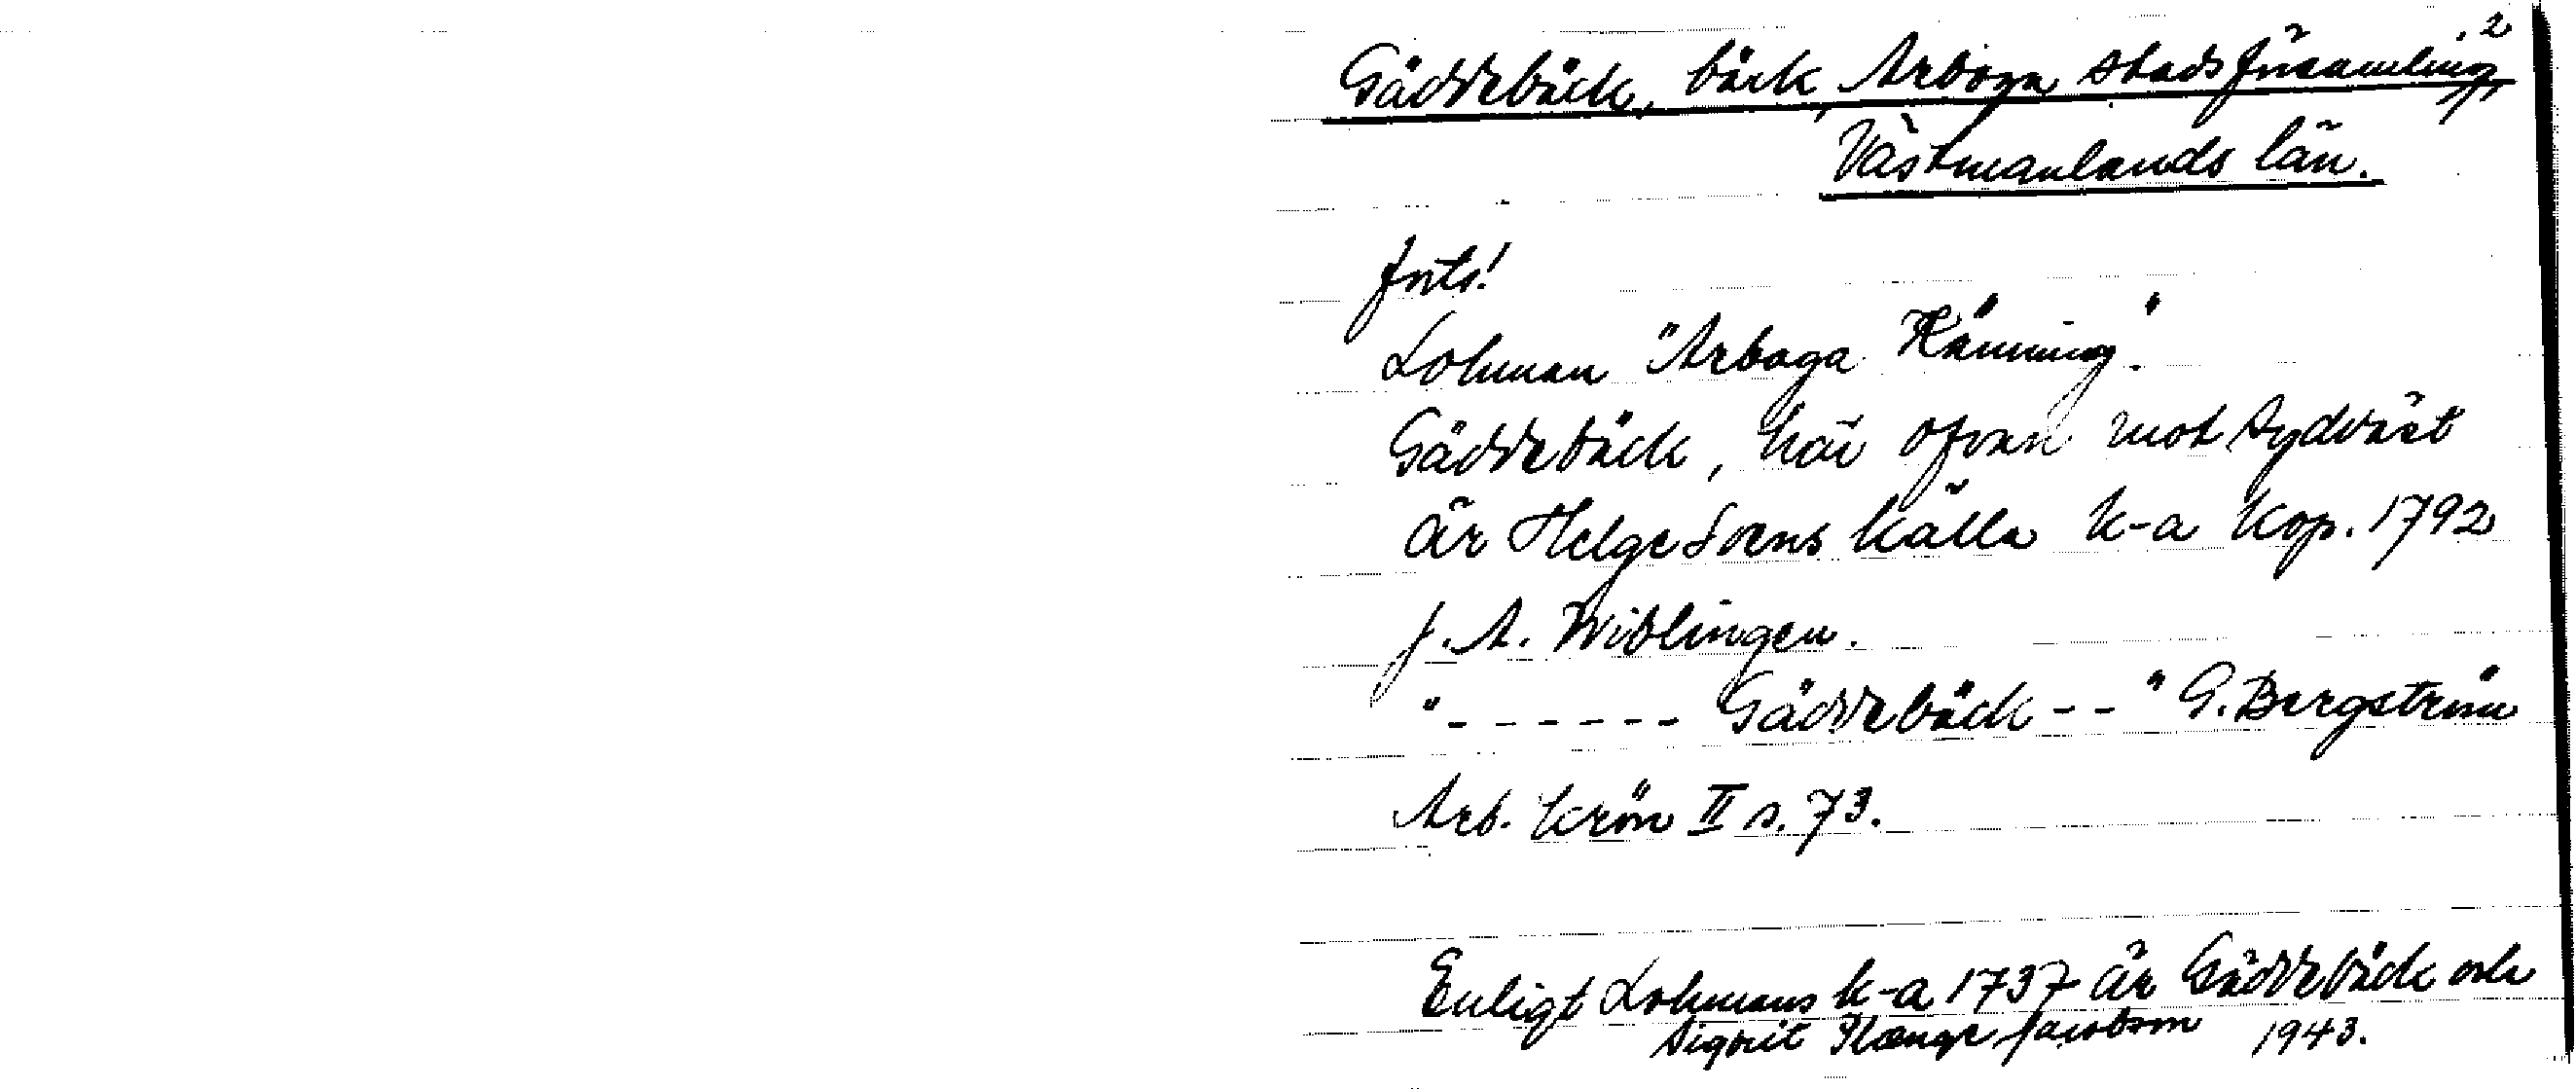 Gäddebäck, bäck, Arboga stadsförsamling, 2
Västmanlands län.
forts!
Lohman "Arboga Känning".
Gäddebäck, här ofvan mot sydväst
är Helge Svens källa k-a kop. 1792
J. A. Wiblingen.
"- - - - - - Gäddebäck - -" G. Bergström
Arb. krön II s. 73.
Enligt Lohmans k-a 1737 är Gäddebäck och
Sigrit Jacobson 1943.